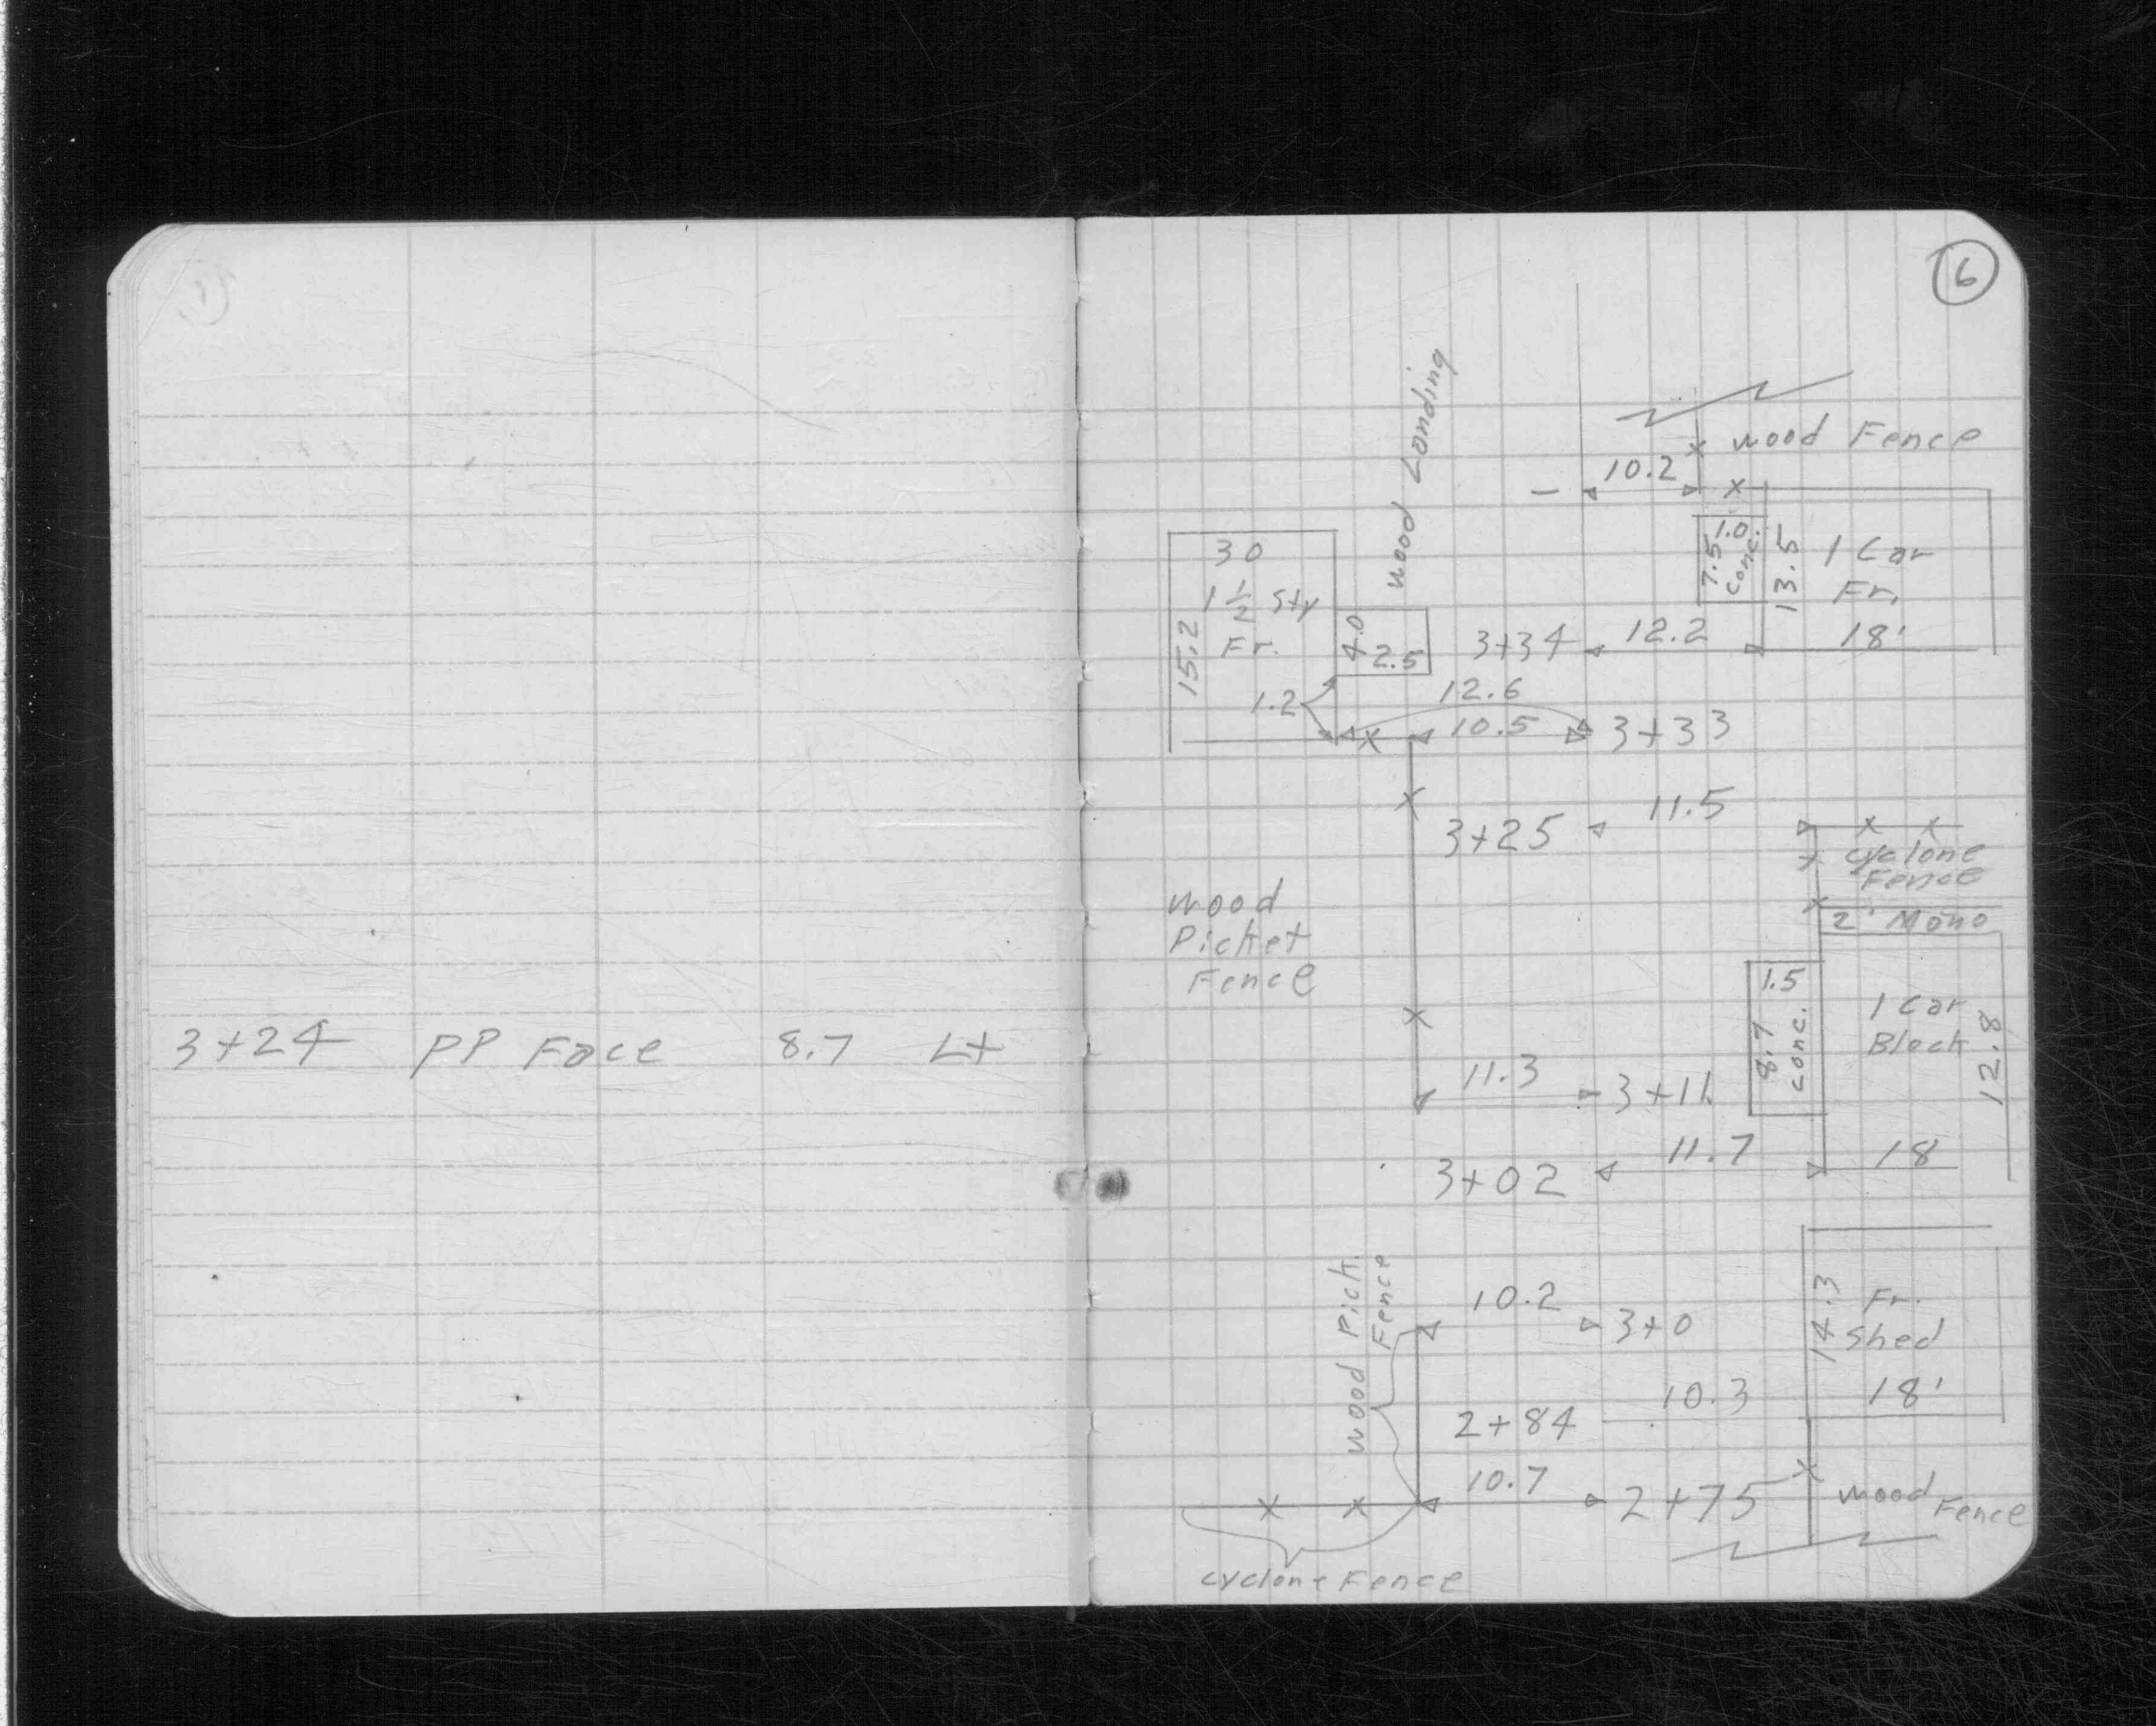 3+24 PP Face 8.7 Lt
6
Wood Landing
Wood Fence
10.2
30
1 1/2 Sty
Fr.
15.2
4.0
2.5
1.0
7.5
Conc.
13.5
1 Car
Fr.
18'
3+34 12.2
12.6
1.2
10.5 3+33
11.5
3+25
Cyclone
Fence
2' Mono
Wood
Picket
Fence
1.5
8.7
Conc.
1 Car
Block
12.8
18
11.3 3+11
11.7
3+02
Wood Pick.
Fence
10.2 3+0
14.3
Fr.
Shed
18'
10.3
2+84
10.7 2+75
Wood Fence
Cyclone Fence